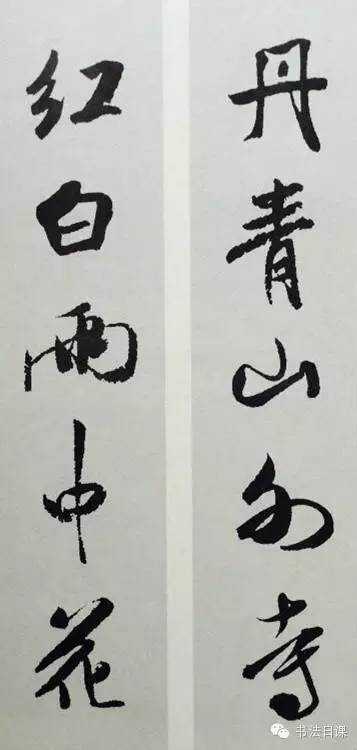 丹青山外寺
红白雨中花
书法日课